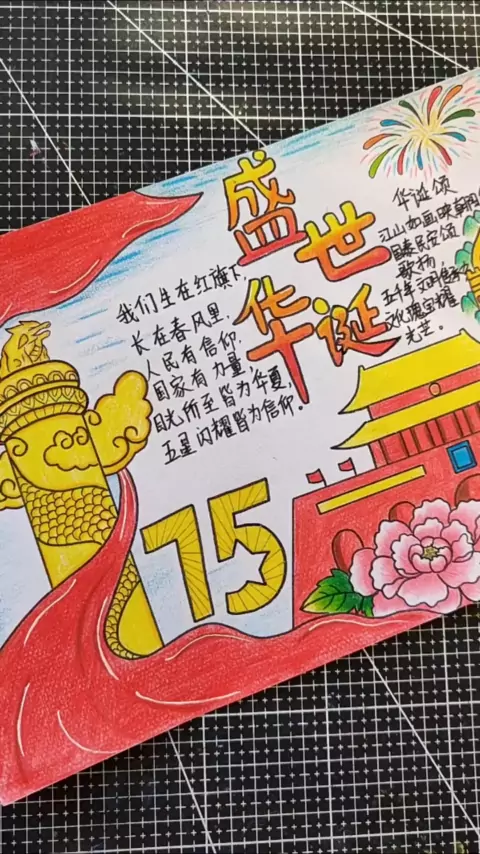 盛世
华诞
我们生在红旗下，
长在春风里，
人民有信仰，
国家有力量，
目光所至皆为华夏，
五星闪耀皆为信仰。
华诞颂
江山如画映朝阳
国泰民安颂
歌扬，
五千年文明传
文化瑰宝耀
光芒。
75